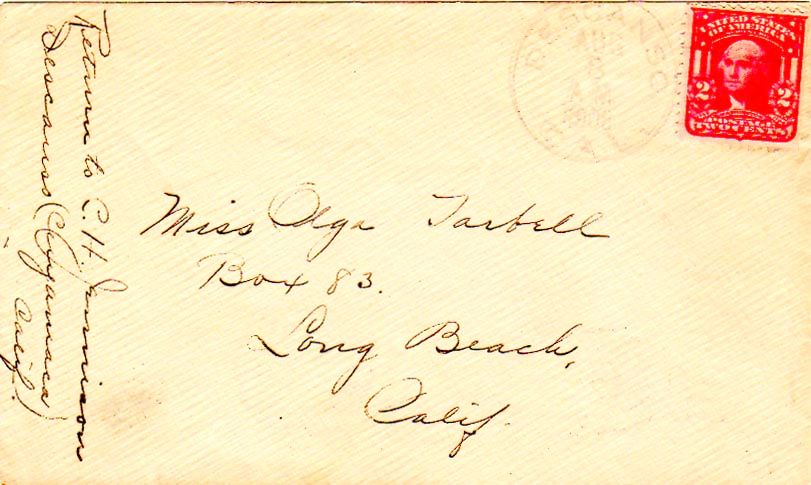 Return to C. H. Jennison
Descanso (Cuyamaca
Calif.)
DESCANSO
AUG
8
A.M.
CAL.
UNITED STATES
OF AMERICA
2 2
POSTAGE
TWO CENTS
Miss Olga Tarbell
Box 83.
Long Beach,
Calif.